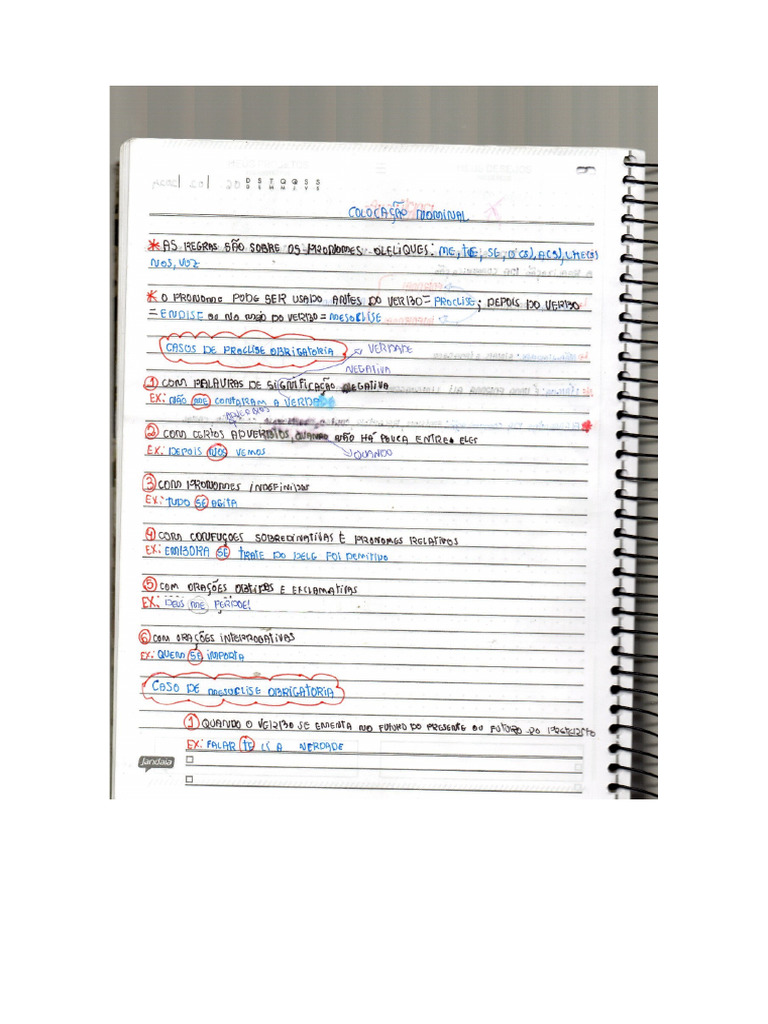 D S T Q Q S S
D S M M J V S
COLOCAÇÃO NOMINAL
* AS REGRAS SÃO SOBRE OS PRONOMES OLELIQUES: ME, TE, SE, O(S), A(S), LHE(S)
NOS, VOZ
* O PRONOME PODE SER USADO ANTES DO VERBO = PROCLISE; DEPOIS DO VERBO
= ENDISE OU NO MEIO DO VERBO = MESOCLISE
CASOS DE PROCLISE OBRIGATORIA
VERDADE
NEGATIVA
1 COM PALAVRAS DE SIGNIFICAÇÃO NEGATIVA
EX: NÃO ME CONTARAM A VERDA
ADVERBIOS
2 COM CERTOS ADVERBIOS, QUANDO NÃO HÁ PAUCA ENTRE ELES
EX: DEPOIS NOS VEMOS
QUANDO
3 COM PRONOMES INDEFINIDOS
EX: TUDO SE AGITA
4 COM CONFUÇOES SOBREDINATIVAS E PRONOMES RELATIVOS
EX: EMBORA SE TRATE DO DELE FOI DEMITIVO
5 COM ORAÇÕES E EXCLAMATIVAS
EX: DEUS ME PERDOE!
6 COM ORAÇÕES INTERRODATIVAS
EX: QUEM SE IMPORTA
CASO DE MESOCLISE OBRIGATORIA
1 QUANDO O VERBO SE EMENTA NO FUTURO DO PRESENTE OU FUTURO DO PRETERITO
EX: FALAR TE LÍ A VERDADE
Jandaia